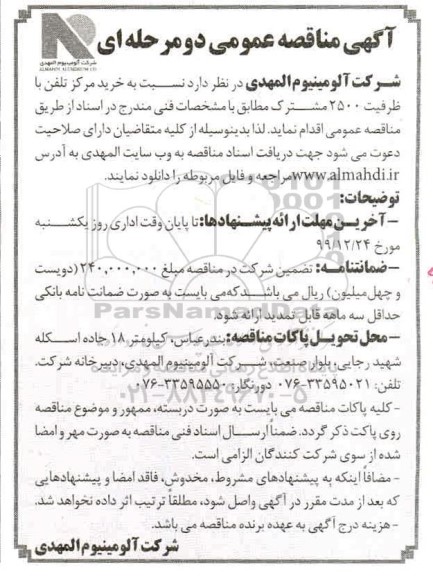 شرکت آلومینیوم المهدی
ALMAHDI ALUMINIUM CO
آگهی مناقصه عمومی دو مرحله ای
شرکت آلومینیوم المهدی در نظر دارد نسبت به خرید مرکز تلفن با
ظرفیت ۲۵۰۰ مشترک مطابق با مشخصات فنی مندرج در اسناد از طریق
مناقصه عمومی اقدام نماید. لذا بدینوسیله از کلیه متقاضیان دارای صلاحیت
دعوت می شود جهت دریافت اسناد مناقصه به وب سایت المهدی به آدرس
www.almahdi.ir مراجعه و فایل مربوطه را دانلود نمایند.
توضیحات:
- آخرین مهلت ارائه پیشنهادها: تا پایان وقت اداری روز یکشنبه
مورخ ۹۹/۱۲/۲۴
- ضمانتنامه: تضمین شرکت در مناقصه مبلغ ۲۴۰,۰۰۰,۰۰۰ (دویست
و چهل میلیون) ریال می باشد که می بایست به صورت ضمانت نامه بانکی
حداقل سه ماهه قابل تمدید ارائه شود.
- محل تحویل پاکات مناقصه: بندرعباس، کیلومتر ۱۸ جاده اسکله
شهید رجایی، بلوار صنعت، شرکت آلومینیوم المهدی، دبیرخانه شرکت.
تلفن: ۳۳۵۹۵۰۲۱-۰۷۶ دورنگار: ۳۳۵۹۵۵۵۰-۰۷۶
- کلیه پاکات مناقصه می بایست به صورت دربسته، ممهور و موضوع مناقصه
روی پاکت ذکر گردد. ضمناً ارسال اسناد فنی مناقصه به صورت مهر و امضا
شده از سوی شرکت کنندگان الزامی است.
- مضافاً اینکه به پیشنهادهای مشروط، مخدوش، فاقد امضا و پیشنهادهایی
که بعد از مدت مقرر در آگهی واصل شود، مطلقاً ترتیب اثر داده نخواهد شد.
- هزینه درج آگهی به عهده برنده مناقصه می باشد.
شرکت آلومینیوم المهدی
ParsNamadData
۰۲۱-۸۸۳۴۹۶۷۰-۵